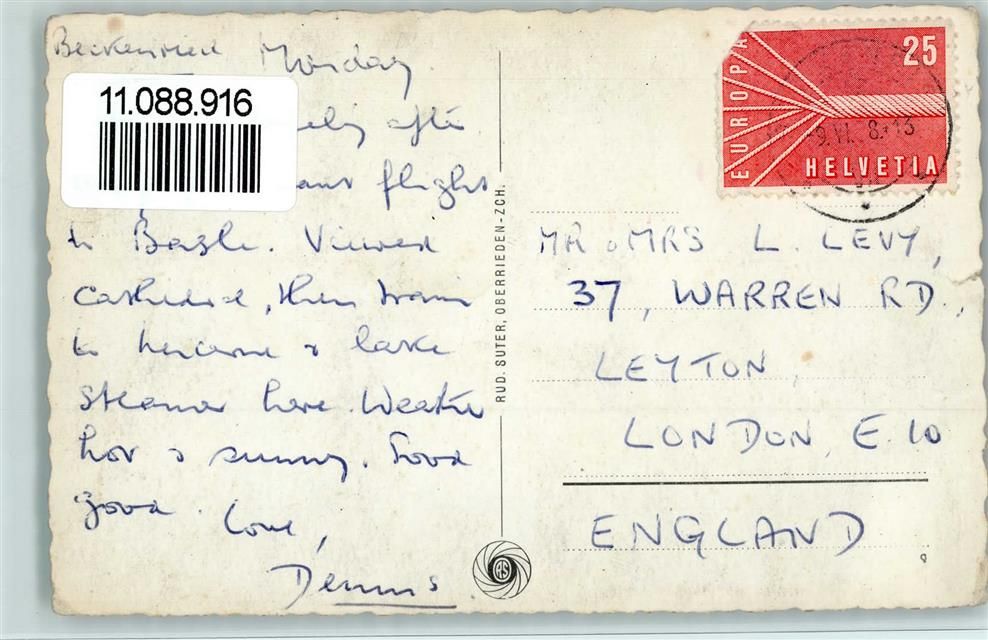 Beckenried Monday
11.088.916
after
flight
to Basle. Viewed
Cathedral, then train
to Lucerne & lake
steamer here. Weather
hot & sunny. Food
good. Love,
Dennis
RUD. SUTER, OBERRIEDEN-ZCH.
RS
EUROPA
25
HELVETIA
MR & MRS L. LEVY,
37, WARREN RD,
LEYTON,
LONDON, E 10
ENGLAND